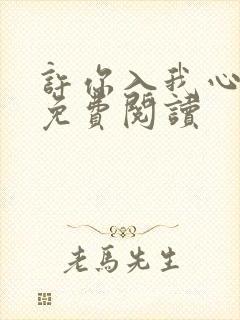 許你入我心
免費閱讀
老馬先生